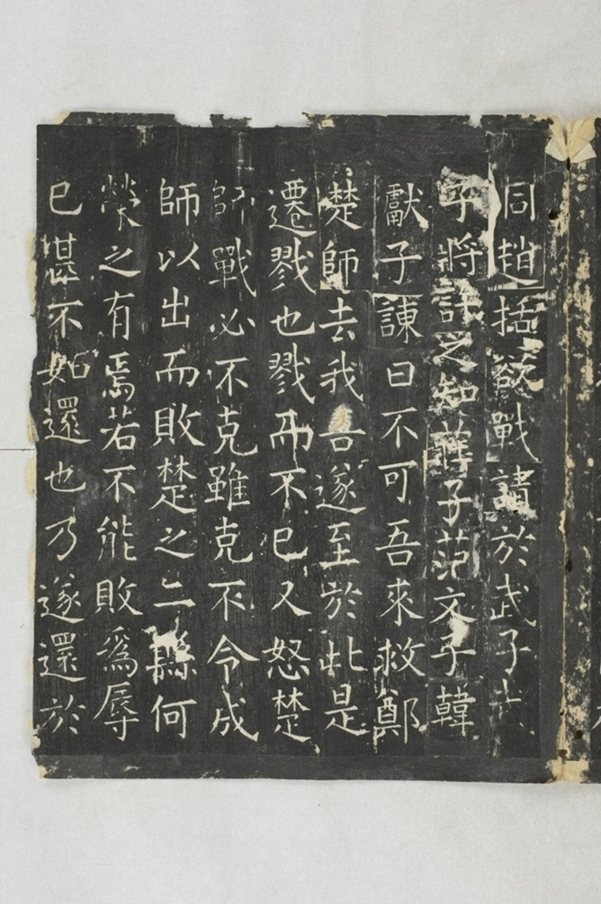 同趙括欲戰請於武子武
子將許之知莊子范文子韓
獻子諫曰不可吾來救鄭
楚師去我吾遂至於此是
遷戮也戮而不已又怒楚
師戰必不克雖克不令成
師以出而敗楚之二縣何
榮之有焉若不能敗為辱
已甚不如還也乃遂還於